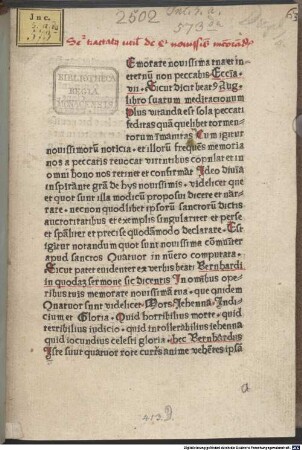 Inc.
2502
573
Seq̄ tractat᷒ utilis de q̄ novissimis memorādis
BIBLIOTHECA
REGIA
MONACENSIS
Emorare nouissima tua et in
eternū non peccabis Eccia.
vij. Sicut dicit beat⁹ Aug⁹
libro suarum meditacionum
Plus vitanda est sola peccati
feditas quā quelibet tormen-
torum īmanitas Cum igitur
nouissimorū noticia. et illorū freq̄ns memoria
nos a peccatis reuocat virtutibus copulat et in
omni bono nos retinet et confirmat Ideo diuīa
inspirāte grā de hys nouissimis. videlicet que
et quot sunt illa modicū proposui dicere et nar-
rare. necnon quodlibet ipsorū sanctorū dictis
auctoritatibus et exemplis singulariter et perse
et sp̄aliter et precise quodāmodo declarare. Est
igitur notandum quot sunt nouissima cōmūniter
apud sanctos Quatuor in nūero computata.
Sicut patet euidenter ex verbis beati Bernhardi
in quodā sermone sic dicentis In omnibus ope-
ribus tuis memorare nouissima tua. que quidem
Quatuor sunt videlicet. Mors. Jehenna. Iudi-
cium et Gloria. Quid horribilius morte. quid
terribilius iudicio. quid intollerabilius iehenna
quid iocundius celesti gloria. hec Bernhardus
Iste sunt quatuor rote curr⁹ anime vehētes ipsā
a